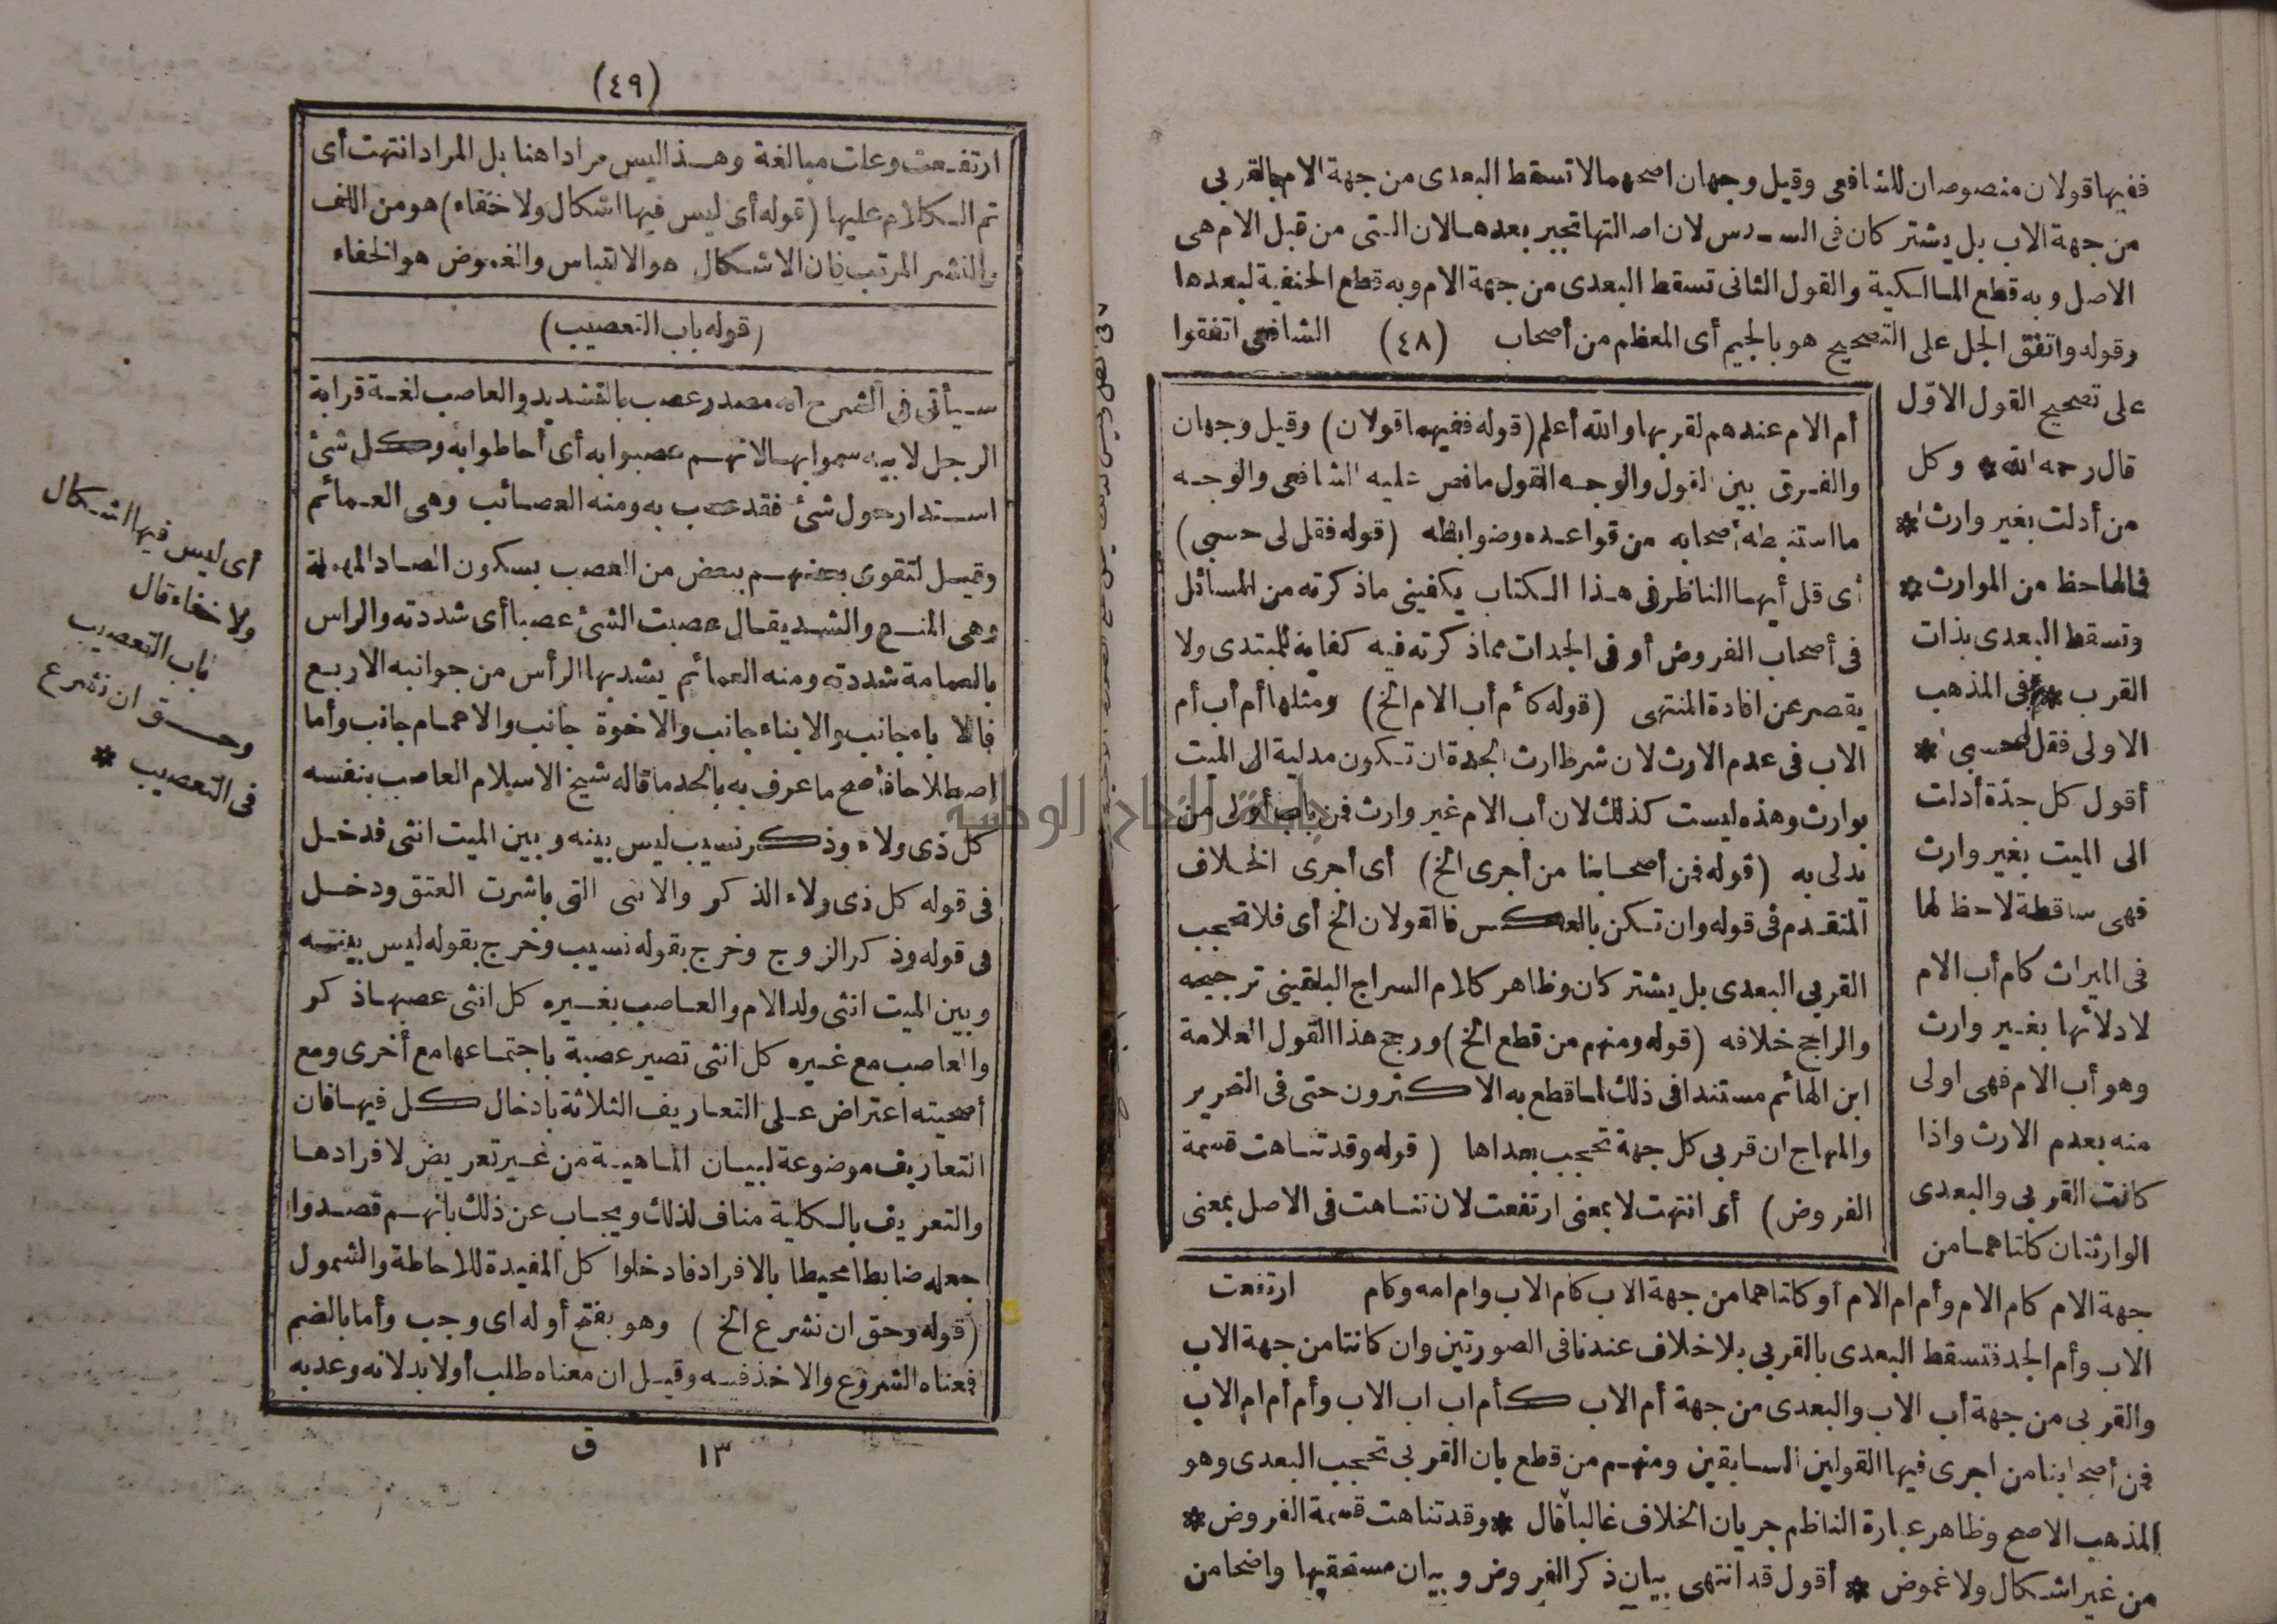 ففيها قولان منصوصان للشافعى وقيل وجهان اصحهما لا تسقط البعدى من جهة الام بالقربى
من جهة الاب بل يشتركان فى السدس لان اصالتها تجبر بعدها لان التى من قبل الام هى
الاصل وبه قطع المالكية والقول الثانى تسقط البعدى من جهة الام وبه قطع الحنفية لبعدها
وقوله واتفق الجل على التصحيح هو بالجيم أى المعظم من أصحاب (٤٨) الشافعى اتفقوا
على تصحيح القول الاوّل
قال رحمه الله * وكل
من أدلت بغير وارث *
فمالها حظ من الموارث *
وتسقط البعدى بذات
القرب * فى المذهب
الاولى فقل لى حسبى *
أقول كل جدّة أدلت
الى الميت بغير وارث
فهى ساقطة لا حظ لها
فى الميراث كام أب الام
لادلائها بغير وارث
وهو أب الام فهى اولى
منه بعدم الارث واذا
كانت القربى والبعدى
الوارثتان كانتاهما من
جهة الام كام الام وأم ام الام أو كانتاهما من جهة الاب كام الاب وام امه وكام
الاب وأم الجد فتسقط البعدى بالقربى بلا خلاف عندنا فى الصورتين وان كانتا من جهة الاب
والقربى من جهة أب الاب والبعدى من جهة أم الاب كأم اب اب الاب وأم أم ام الاب
فمن أصحابنا من اجرى فيها القولين السابقين ومنهم من قطع بان القربى تحجب البعدى وهو
المذهب الاصح وظاهر عبارة الناظم جريان الخلاف غالبا قال * وقد تناهت قسمة الفروض *
من غير اشكال ولا غموض * أقول قد انتهى بيان ذكر الفروض وبيان مستحقيها واضحا من
أم الام عندهم لقربها والله أعلم (قوله ففيهما قولان) وقيل وجهان
والفرق بين القول والوجه القول ما نص عليه الشافعى والوجه
ما استنبطه أصحابه من قواعده وضوابطه (قوله فقل لى حسبى)
أى قل أيها الناظر فى هذا الكتاب يكفينى ما ذكرته من المسائل
فى أصحاب الفروض أو فى الجدات مما ذكرته فيه كفاية للمبتدى ولا
يقصر عن افادة المنتهى (قوله كأم أب الام الخ) ومثلها أم أب أم
الاب فى عدم الارث لان شرط ارث الجدة ان تكون مدلية الى الميت
بوارث وهذه ليست كذلك لان أب الام غير وارث فمن باب أولى من
يدلى به (قوله فمن أصحابنا من أجرى الخ) أى أجرى الخلاف
المتقدم فى قوله وان تكن بالعكس فالقولان الخ أى فلا تحجب
القربى البعدى بل يشتركان وظاهر كلام السراج البلقينى ترجيحه
والراجح خلافه (قوله ومنهم من قطع الخ) ورجح هذا القول العلامة
ابن الهائم مستندا فى ذلك لما قطع به الاكثرون حتى فى التحرير
والمنهاج ان قربى كل جهة تحجب بعداها (قوله وقد تناهت قسمة
الفروض) أى انتهت لا بمعنى ارتفعت لان تناهت فى الاصل بمعنى
ارتفعت
(٤٩)
ارتفعت وعلت مبالغة وهذا ليس مرادا هنا بل المراد انتهت أى
تم الكلام عليها (قوله أى ليس فيها اشكال ولا خفاء) هو من اللف
والنشر المرتب فان الاشكال هو الالتباس والغموض هو الخفاء
(قوله باب التعصيب)
سيأتى فى الشرح انه مصدر عصب بالتشديد والعاصب لغة قرابة
الرجل لابيه سموا بها لانهم عصبوا به أى أحاطوا به وكل شئ
استدار حول شئ فقد عصب به ومنه العصائب وهى العمائم
وقيل لتقوى بعضهم ببعض من العصب بسكون الصاد المهملة
وهى المنع والشد يقال عصبت الشئ عصبا أى شددته والراس
بالعمامة شددته ومنه العمائم يشد بها الرأس من جوانبه الاربع
فالاباء جانب والابناء جانب والاخوة جانب والاعمام جانب وأما
اصطلاحا فأصح ما عرف به بالحد ما قاله شيخ الاسلام العاصب بنفسه
كل ذى ولاء وذكر نسيب ليس بينه وبين الميت انثى فدخل
فى قوله كل ذى ولاء الذكر والانثى التى باشرت العتق ودخل
فى قوله وذكر الزوج وخرج بقوله نسيب وخرج بقوله ليس بينه
وبين الميت انثى ولد الام والعاصب بغيره كل انثى عصبها ذكر
والعاصب مع غيره كل انثى تصير عصبة باجتماعها مع أخرى ومع
أصحيته اعتراض على التعاريف الثلاثة بادخال كل فيها فان
التعاريف موضوعة لبيان الماهية من غير تعريض لافرادها
والتعريف بالكلية مناف لذلك ويجاب عن ذلك بانهم قصدوا
جعله ضابطا محيطا بالافراد فادخلوا كل المفيدة للاحاطة والشمول
(قوله وحق ان نشرع الخ) وهو بفتح أوله اى وجب وأما بالضم
فمعناه الشروع والاخذ فيه وقيل ان معناه طلب أولا بد لانه وعد به
١٣ ق
أى ليس فيها اشكال
ولا خفاء قال
باب التعصيب
وحق ان نشرع
فى التعصيب *
جامعة النجاح الوطنية